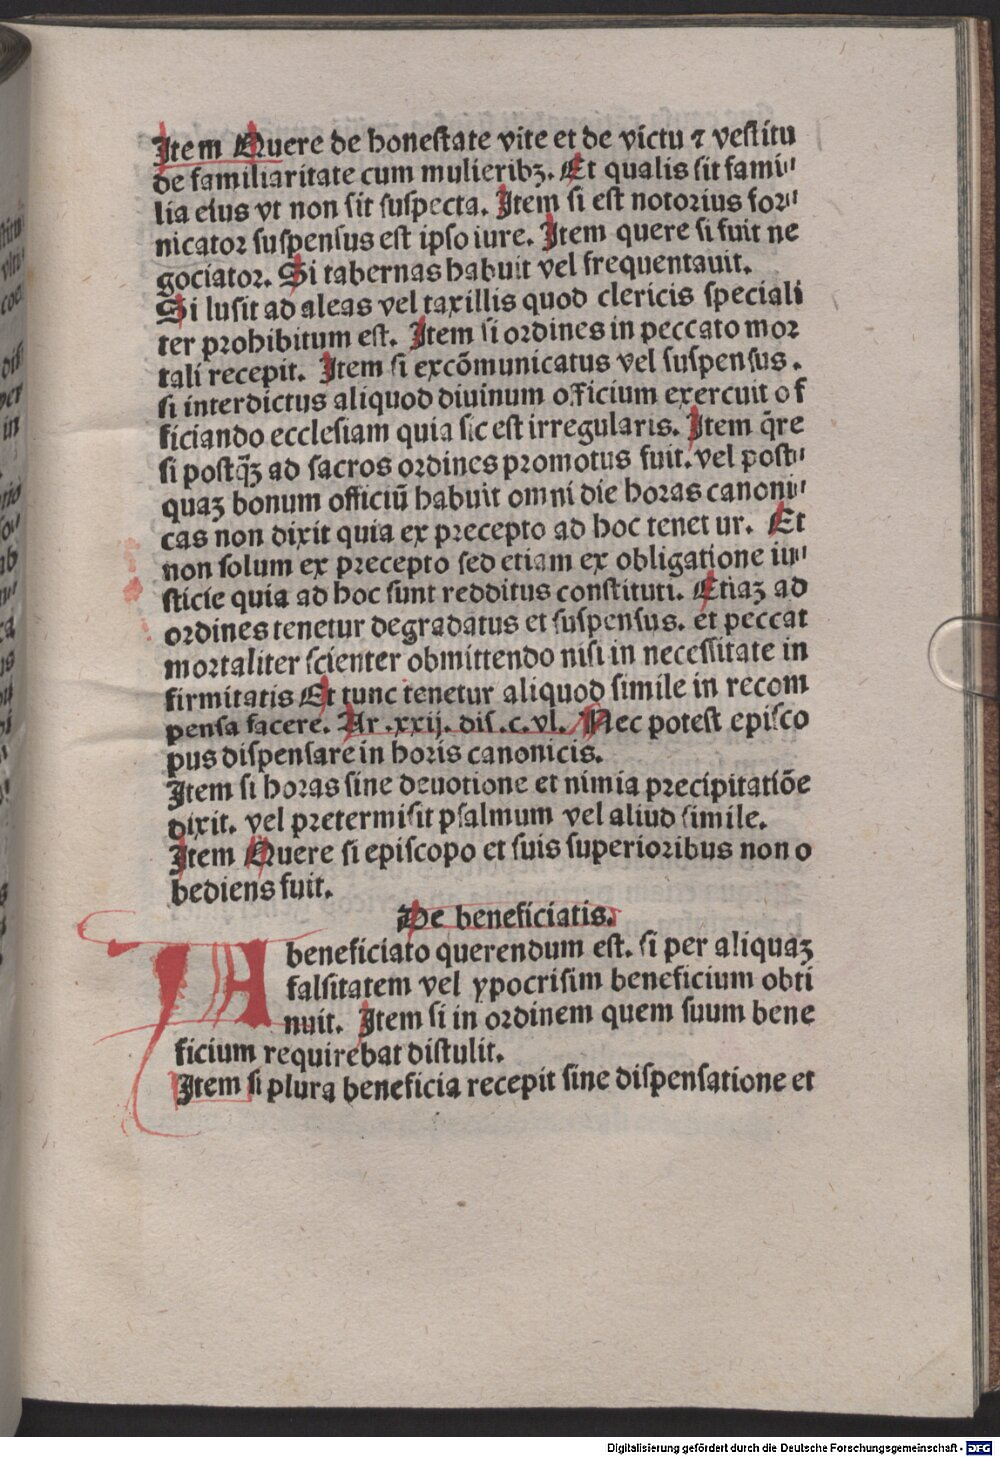 Item Quere de honestate vite et de victu ⁊ vestitu
de familiaritate cum mulieribꝫ. Et qualis sit fami⸗
lia eius vt non sit suspecta. Item si est notorius for⸗
nicator suspensus est ipso iure. Item quere si fuit ne
gociator. Si tabernas habuit vel frequentauit.
Si lusit ad aleas vel taxillis quod clericis speciali
ter prohibitum est. Item si ordines in peccato mor
tali recepit. Item si excōmunicatus vel suspensus.
si interdictus aliquod diuinum officium exercuit of
ficiando ecclesiam quia sic est irregularis. Item q̄re
si postq̄ꝫ ad sacros ordines promotus fuit. vel post⸗
quaꝫ bonum officiū habuit omni die horas canoni⸗
cas non dixit quia ex precepto ad hoc tenet ur. Et
non solum ex precepto sed etiam ex obligatione iu⸗
sticie quia ad hoc sunt redditus constituti. Etiaꝫ ad
ordines tenetur degradatus et suspensus. et peccat
mortaliter scienter obmittendo nisi in necessitate in
firmitatis Et tunc tenetur aliquod simile in recom
pensa facere. Ar .xxij. dis .c.vl. Nec potest episco
pus dispensare in horis canonicis.
Item si horas sine deuotione et nimia precipitatiōe
dixit. vel pretermisit psalmum vel aliud simile.
Item Quere si episcopo et suis superioribus non o
bediens fuit.
De beneficiatis.
A beneficiato querendum est. si per aliquaꝫ
falsitatem vel ypocrisim beneficium obti
nuit. Item si in ordinem quem suum bene
ficium requirebat distulit.
Item si plura beneficia recepit sine dispensatione et
Digitalisierung gefördert durch die Deutsche Forschungsgemeinschaft - DFG